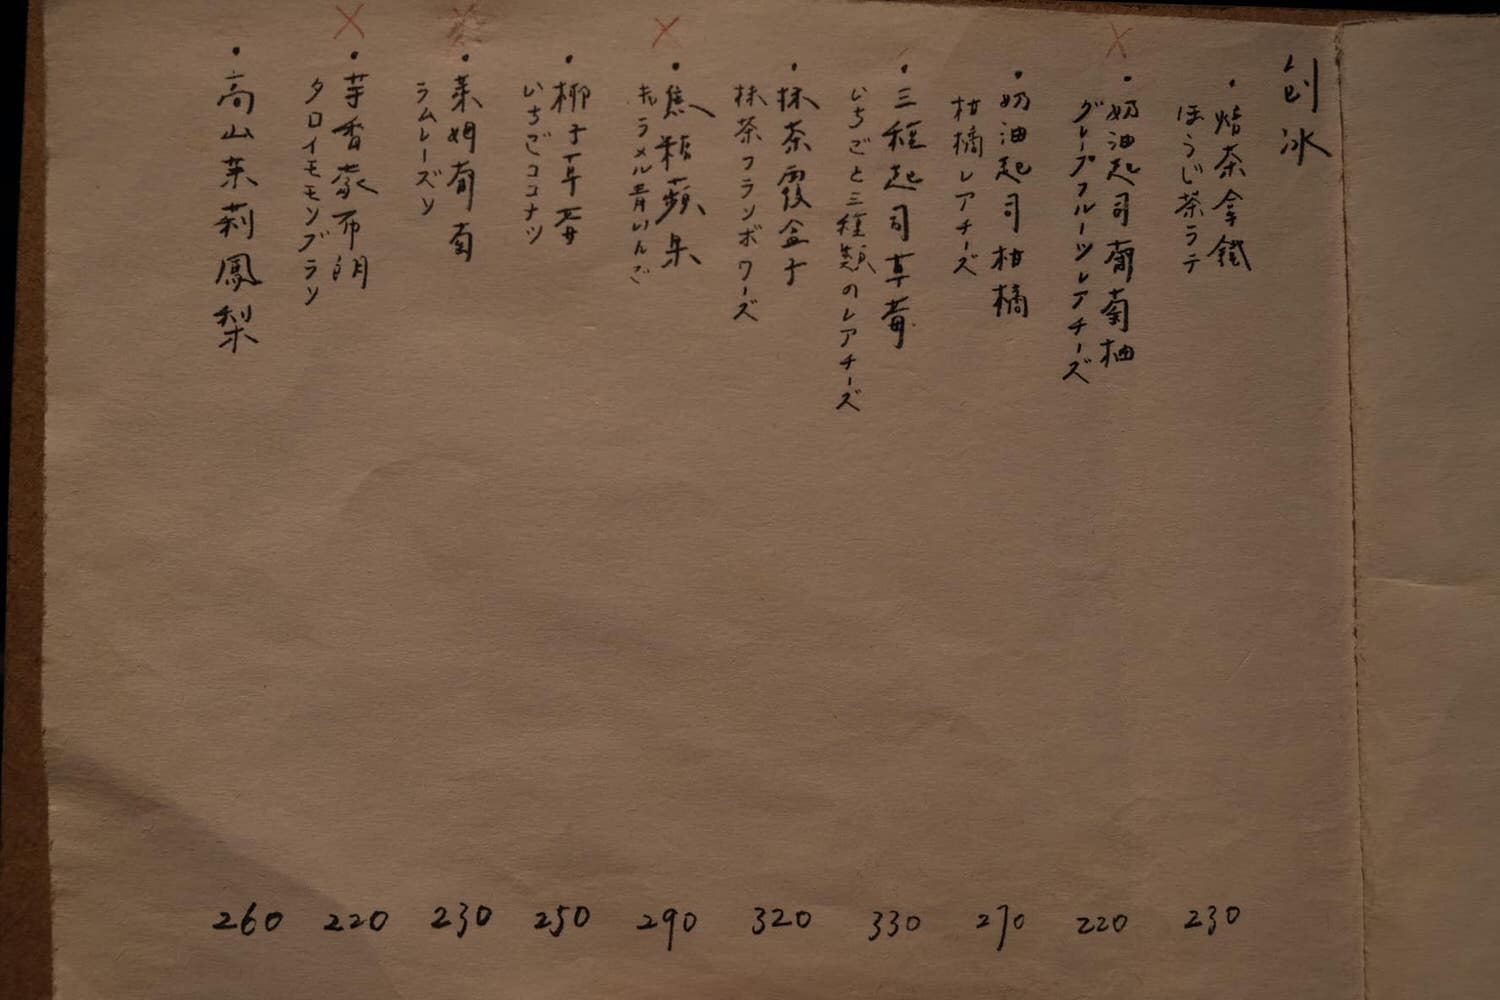 刨冰
・焙茶拿鐵
ほうじ茶ラテ
230
・奶油起司葡萄柚
グレープフルーツレアチーズ
220
・奶油起司柑橘
柑橘レアチーズ
270
・三種起司草莓
いちごと三種類のレアチーズ
330
・抹茶霞盒子
抹茶フランボワーズ
320
・焦糖蘋果
キャラメル青りんご
290
・椰子草莓
いちごココナツ
250
・萊姆葡萄
ラムレーズン
230
・芋香蒙布朗
タロイモモンブラン
220
・高山茉莉鳳梨
260